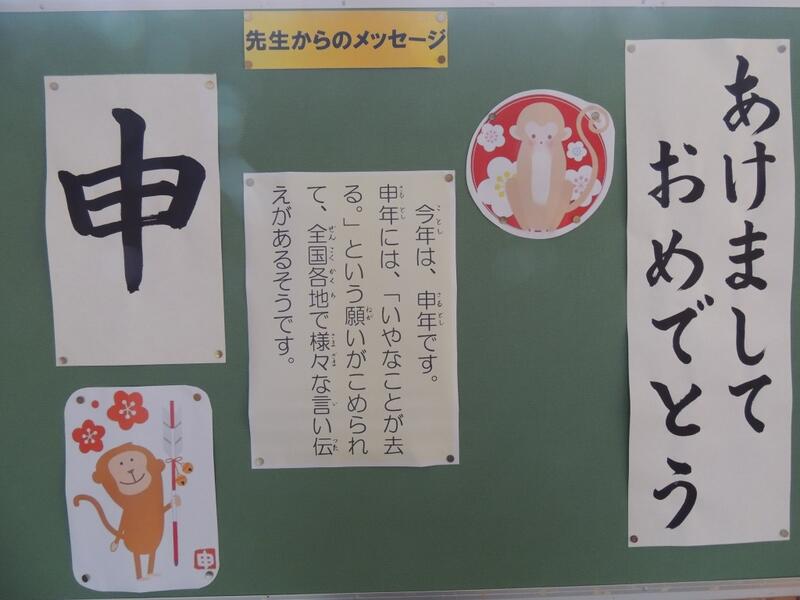 先生からのメッセージ
あけまして
おめでとう
今年は、申年です。
申年には、「いやなことが去
る。」という願いがこめられ
て、全国各地で様々な言い伝
えがあるそうです。
申
申